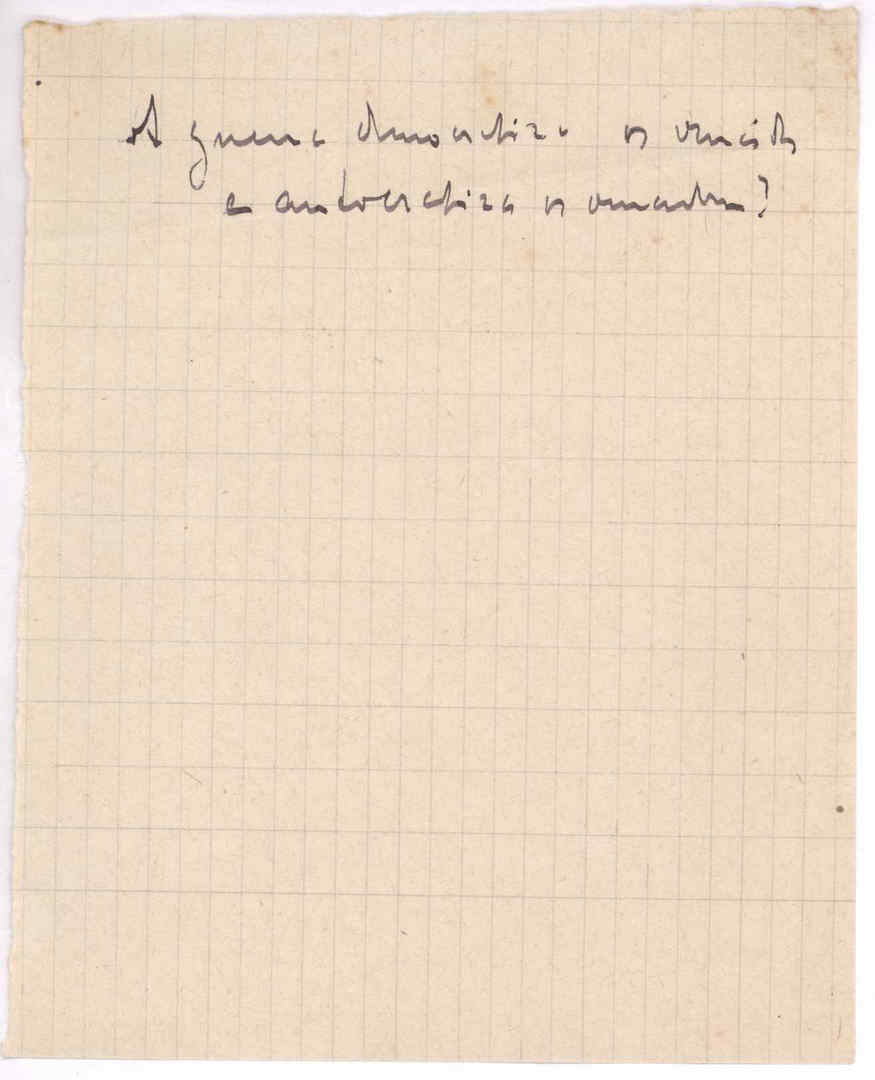 A guerra democratiza os vencidos
e autocratiza os vencedores?